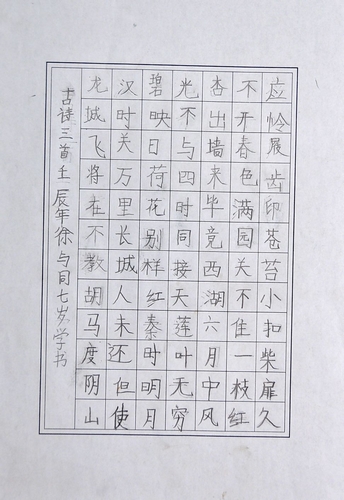 应怜屐齿印苍苔小扣柴扉久
不开春色满园关不住一枝红
杏出墙来毕竟西湖六月中风
光不与四时同接天莲叶无穷
碧映日荷花别样红秦时明月
汉时关万里长城人未还但使
龙城飞将在不教胡马度阴山
古诗三首壬辰年徐与同七岁学书